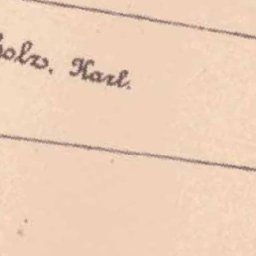 holz, Karl.